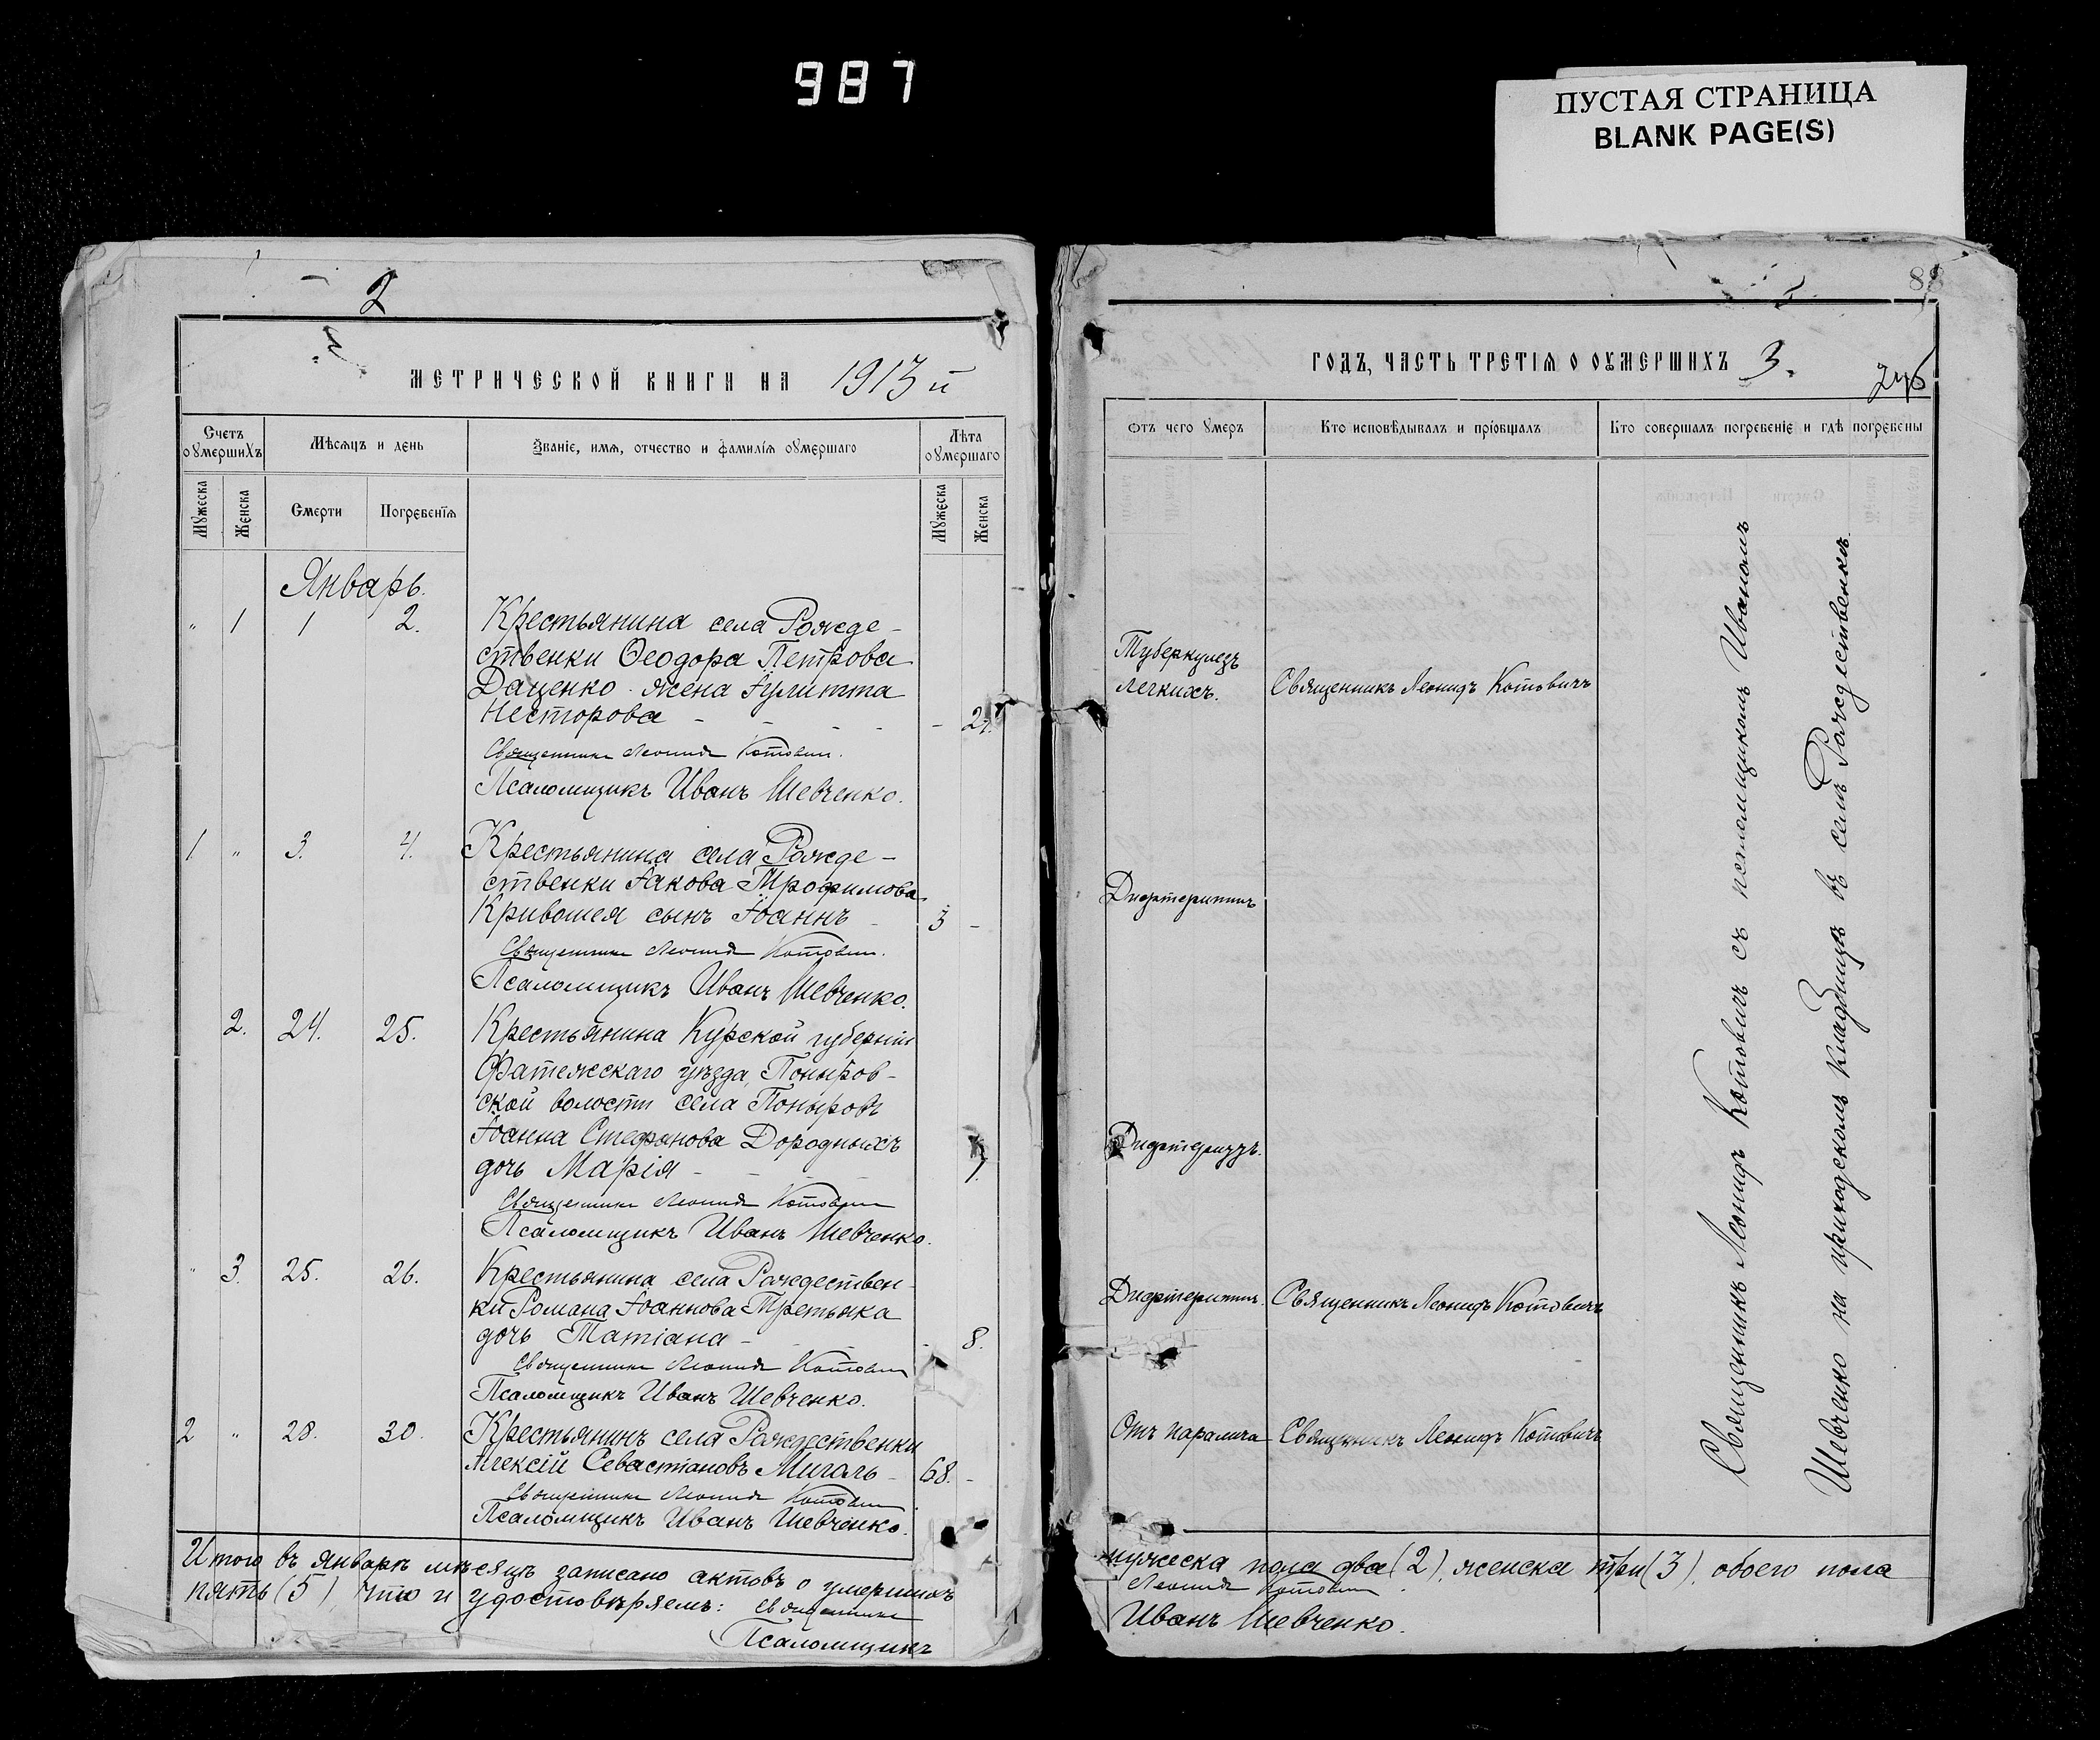 987
ПУСТАЯ СТРАНИЦА
BLANK PAGE(S)
2
МЕТРИЧЕСКОЙ КНИГИ НА 1913 й
Счетъ оумершихъ
Мѣсяцъ и день
Званіе, имя, отчество и фамилія оумершаго
Лѣта оумершаго
Мужеска
Женска
Смерти
Погребенія
Мужеска
Женска
Январь.
" 1 1 2. Крестьянина села Рожде-
ственки Ѳеодора Петрова
Даценко жена Іулитта
Несторова - - - -
Священникъ Леонидъ Котовичъ.
Псаломщикъ Иванъ Шевченко.
1. " 3. 4. Крестьянина села Рожде-
ственки Іакова Трофимова
Кривошея сынъ Іоаннъ - 3 -
Священникъ Леонидъ Котовичъ.
Псаломщикъ Иванъ Шевченко.
2. 24. 25. Крестьянина Курской губерніи
Фатежскаго уѣзда, Поныров-
ской волости села Поныровъ
Іоанна Стефанова Дородныхъ
дочь Марія - - -
Священникъ Леонидъ Котовичъ
Псаломщикъ Иванъ Шевченко.
" 3. 25. 26. Крестьянина села Рождествен-
ки Романа Іоаннова Третьяка
дочь Татіана - - - - 8.
Священникъ Леонидъ Котовичъ
Псаломщикъ Иванъ Шевченко.
2 " 28. 30. Крестьянинъ села Рождественки
Алексій Севастіановъ Мигаль - 68. -
Священникъ Леонидъ Котовичъ
Псаломщикъ Иванъ Шевченко.
Итого въ январѣ мѣсяцѣ записано актовъ о умершихъ
пять (5), что и удостовѣряемъ: Священникъ
Псаломщикъ
88
ГОДЪ, ЧАСТЬ ТРЕТІЯ О ОУМЕРШИХЪ 3.
Отъ чего умеръ
Кто исповѣдывалъ и пріобщалъ
Кто совершалъ погребеніе и гдѣ погребены
Туберкулезъ
легкихъ. Священникъ Леонидъ Котовичъ
Дифтеритъ
Дифтеритъ.
Дифтеритъ. Священникъ Леонидъ Котовичъ
Отъ паралича Священникъ Леонидъ Котовичъ
Священникъ Леонидъ Котовичъ съ псаломщикомъ Иваномъ
Шевченко на приходскомъ кладбищѣ въ селѣ Рождественкѣ.
мужеска пола два (2), женска три (3), обоего пола
Леонидъ Котовичъ.
Иванъ Шевченко.